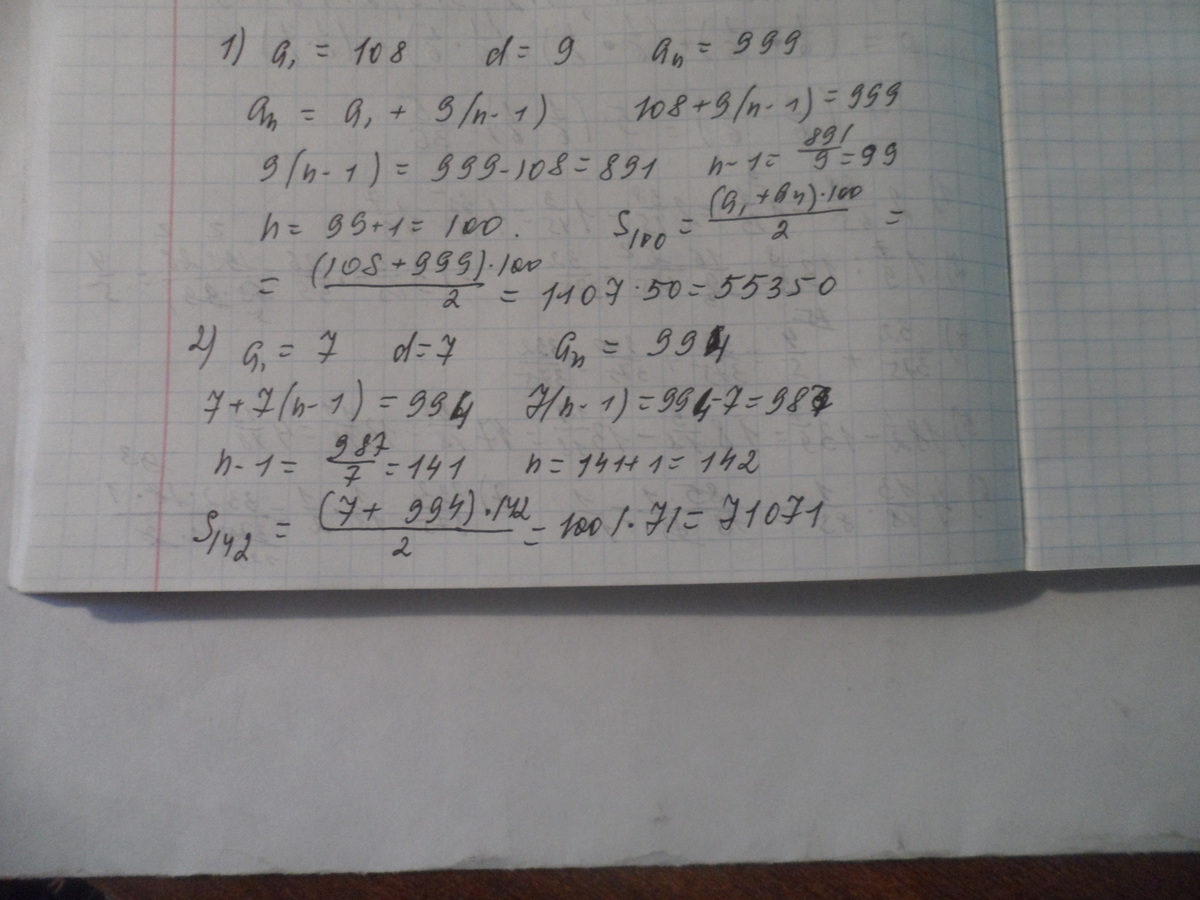 1) a₁ = 108 d = 9 aₙ = 999
aₙ = a₁ + 9(n-1) 108+9(n-1)=999
9(n-1) = 999-108=891 n-1= 891/9=99
n= 99+1= 100. S₁₀₀ = (a₁+aₙ)·100/2 =
= (108+999)·100/2 = 1107·50=55350
2) a₁ = 7 d=7 aₙ = 994
7+7(n-1) = 994 7(n-1)=994-7=987
n-1= 987/7=141 n=141+1= 142
S₁₄₂ = (7+ 994)·142/2 = 1001·71= 71071